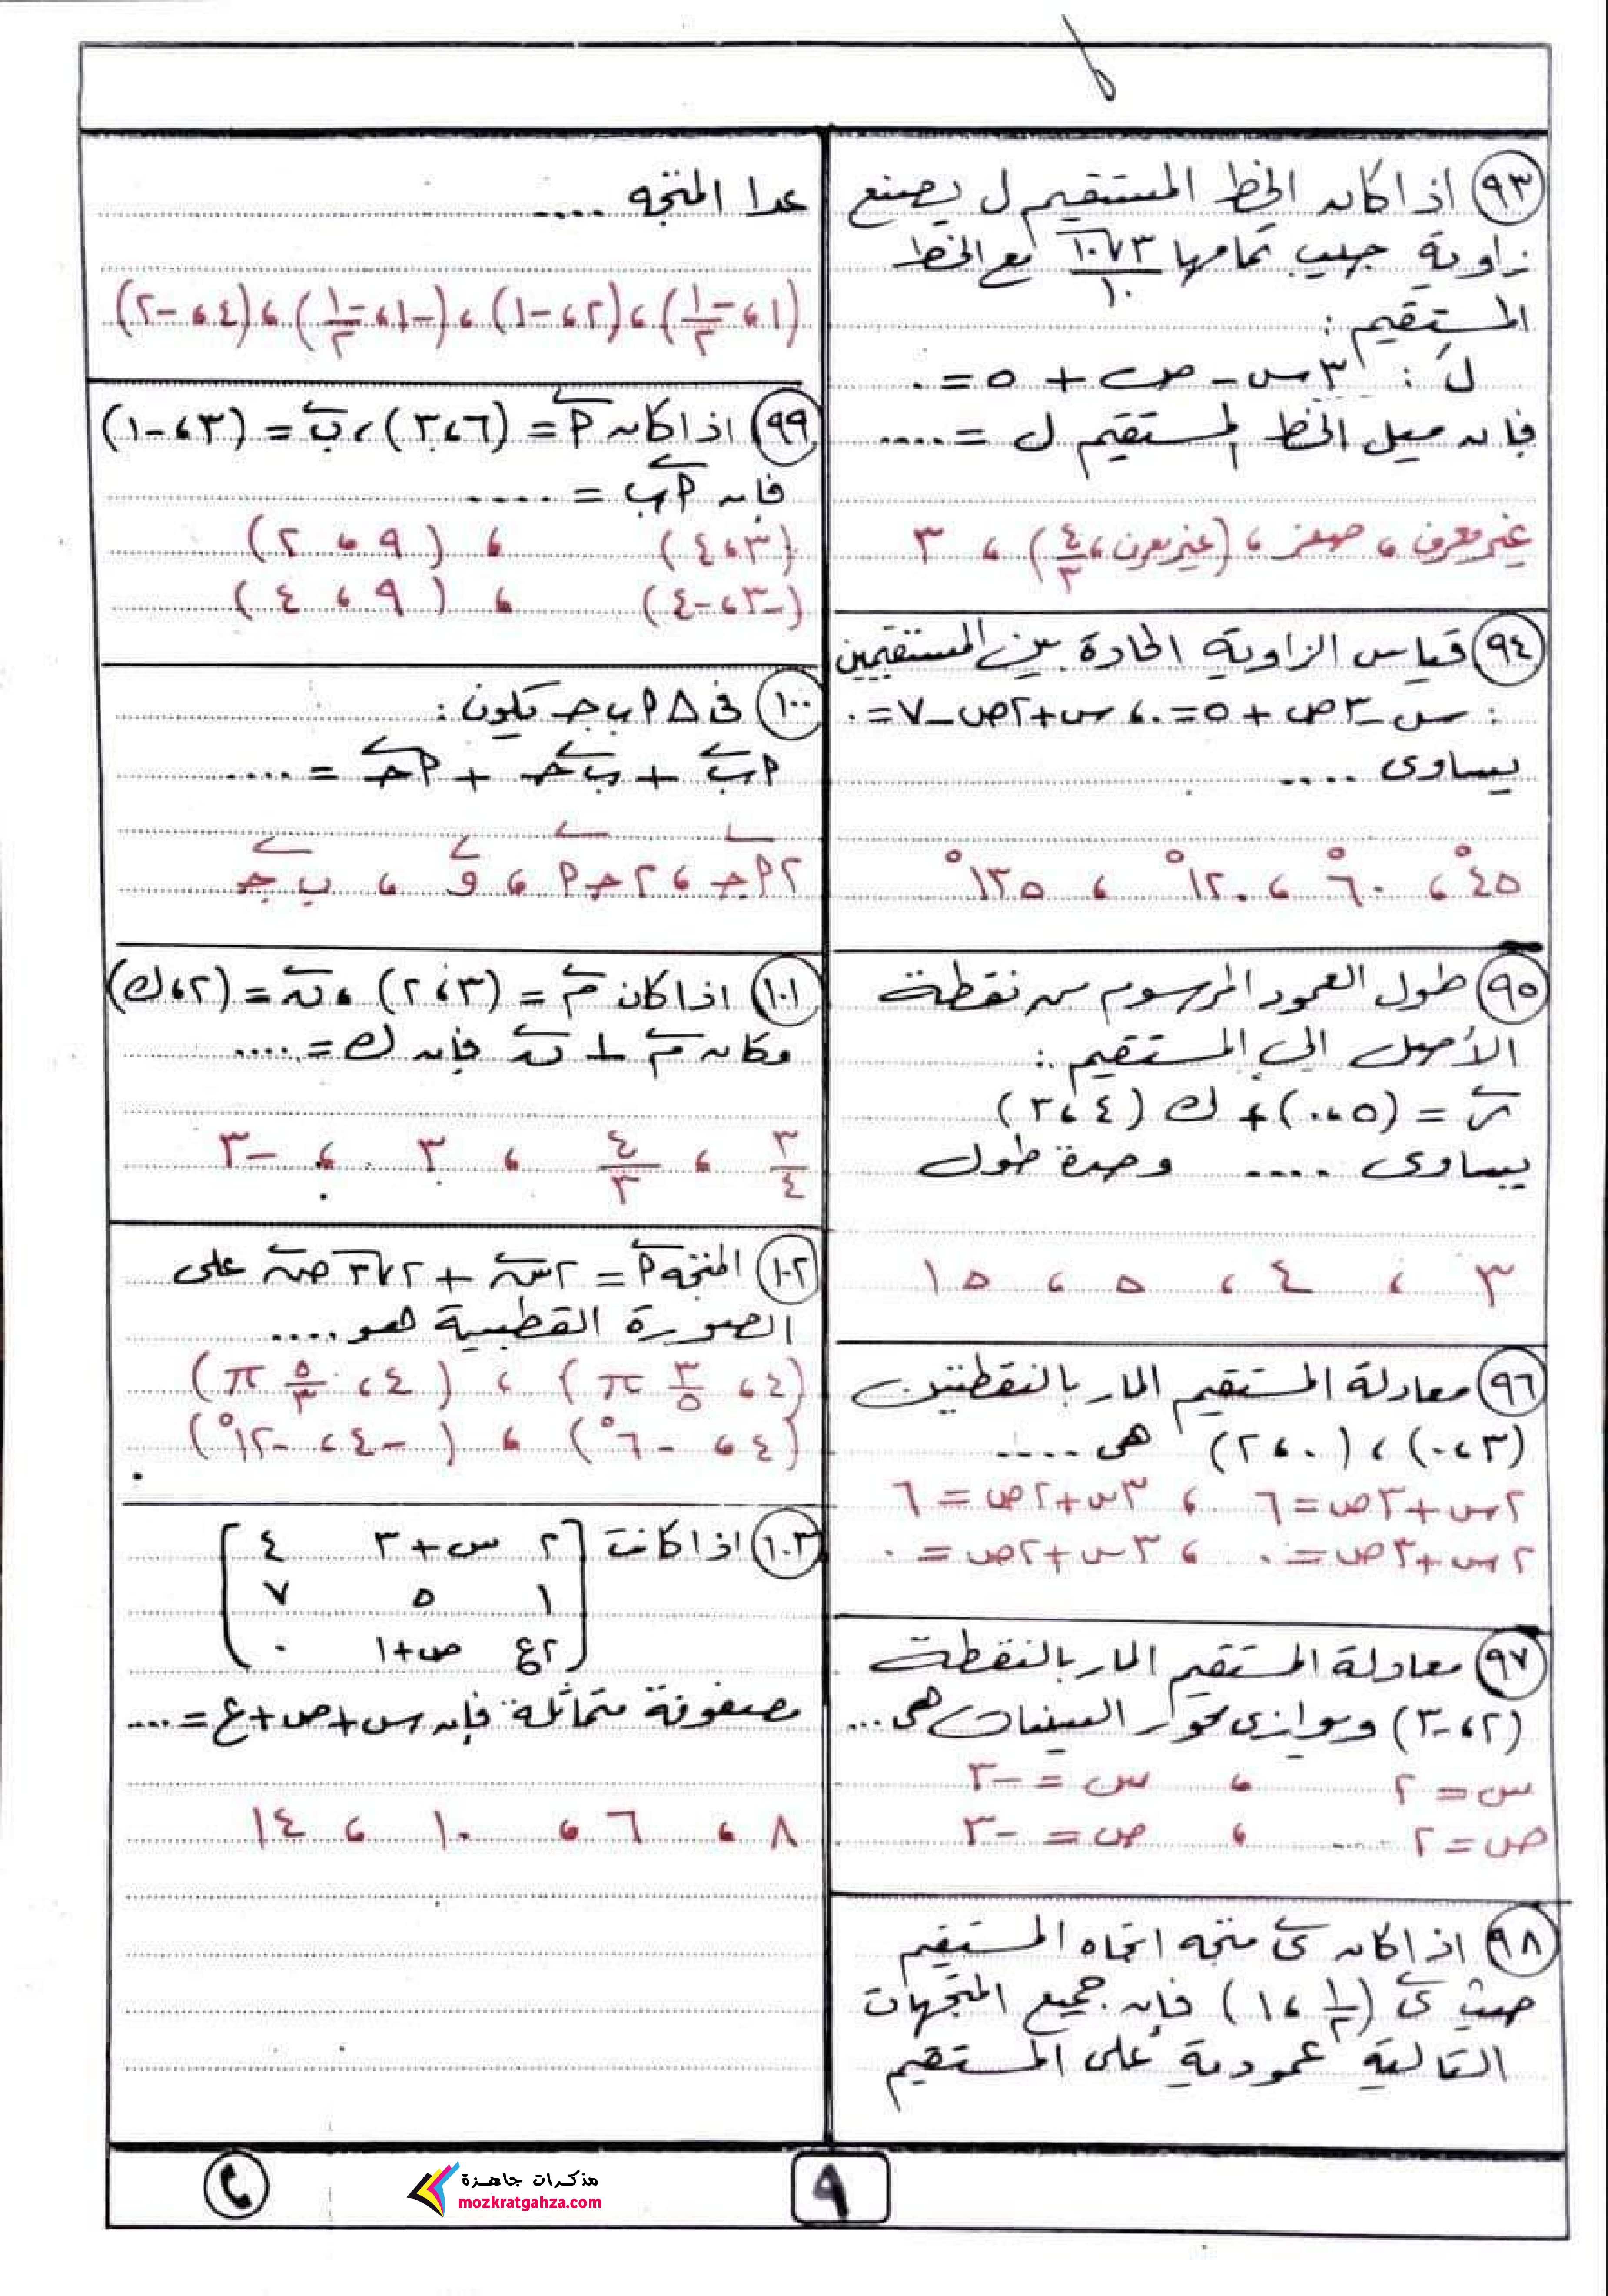 ٩٣ اذا كان الخط المستقيم ل يصنع
زاوية جيب تمامها ٣√١٠/١٠ مع الخط
المستقيم :
لَ : ٣س - ص + ٥ = ٠
فإن ميل الخط المستقيم ل = ....
غير معرف ، صفر ، (غير معرف ، ٤/٣) ، ٣
٩٤ قياس الزاوية الحادة بين المستقيمين
: س - ٣ص + ٥ = ٠ ، س + ٢ص - ٧ = ٠
يساوى ....
٤٥° ، ٦٠° ، ١٢٠° ، ١٣٥°
٩٥ طول العمود المرسوم من نقطة
الأصل الى المستقيم :
ر = (٥ ، ٠) + ك (٤ ، ٣)
يساوى .... وحدة طول
٣ ، ٤ ، ٥ ، ١٥
٩٦ معادلة المستقيم المار بالنقطتين
(٣ ، ٠) ، (٠ ، ٢) هى ....
٢س + ٣ص = ٦ ، ٣س + ٢ص = ٦
٢س + ٣ص = ٠ ، ٣س + ٢ص = ٠
٩٧ معادلة المستقيم المار بالنقطة
(٢ ، -٣) ويوازى محور السينات هى ...
س = ٢ ، س = -٣
ص = ٢ ، ص = -٣
٩٨ اذا كان ى متجه اتجاه المستقيم
حيث ى (١/٢ ، ١) فإن جميع المتجهات
التالية عمودية على المستقيم
عدا المتجه ....
(١ ، -١/٢) ، (٢ ، -١) ، (-١ ، -١/٢) ، (٤ ، -٢)
٩٩ اذا كان أ = (٦ ، ٣) ، ب = (٣ ، -١)
فإن أب = ....
(٣ ، ٤) ، (٩ ، ٢)
(-٣ ، -٤) ، (٩ ، ٤)
١٠٠ فى Δ أ ب جـ يكون :
أب + ب جـ + أجـ = ....
٢أجـ ، ٢جـأ ، و ، ب جـ
١٠١ اذا كان م = (٣ ، ٢) ، ن = (٢ ، ك)
وكان م ⊥ ن فإن ك = ....
٣/٤ ، ٤/٣ ، ٣ ، -٣
١٠٢ المتجه أ = ٢س + ٢√٣ ص على
الصورة القطبية هو ....
(٤ ، ٣/٥ π) ، (٤ ، ٥/٣ π)
(٤ ، -٦٠°) ، (-٤ ، -١٢٠°)
١٠٣ اذا كانت [ ٢ س+٣ ٤
١ ٥ ٧
٢ع ص+١ ٠ ]
مصفوفة متماثلة فإن س + ص + ع = ....
٨ ، ٦ ، ١٠ ، ١٤
٩
مذكرات جاهزة
mozkratgahza.com